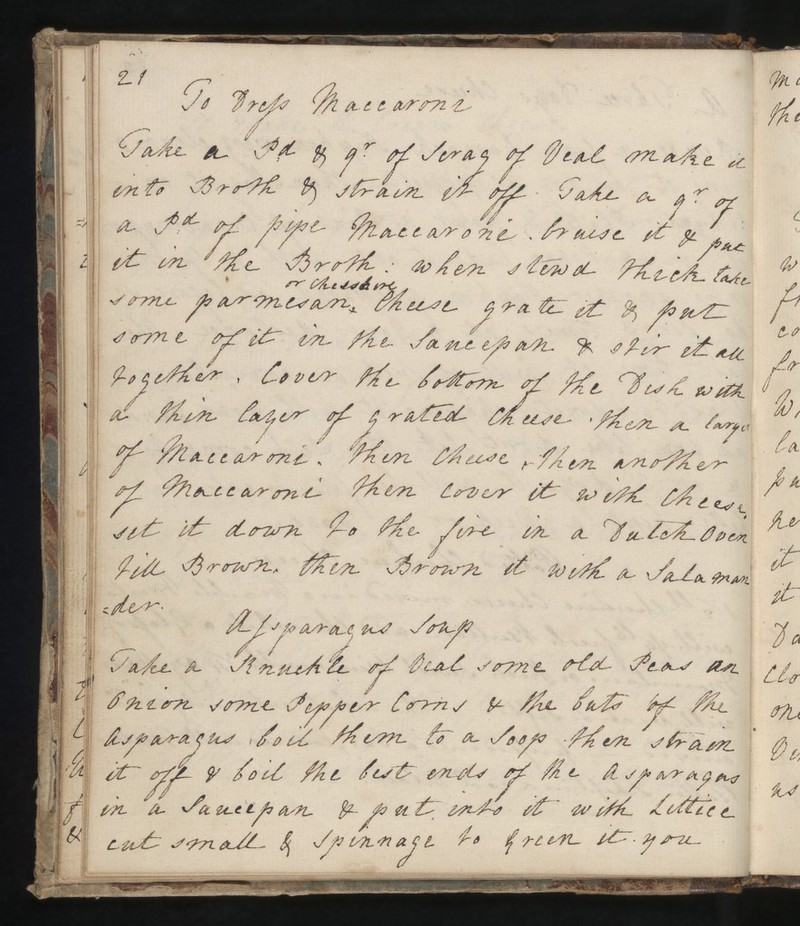 21
To Dress Maccaroni
Take a Pd & qr of Scrag of Veal make it
into Broth & strain it off. Take a qr of
a Pd of pipe Maccaroni. bruise it & put
it in the Broth: when stewd thick take
or Chesshire
some parmesan ‸ Cheese grate it & put
some of it in the Saucepan & stir it all
together. Cover the bottom of the Dish with
a thin layer of grated Cheese. then a large
of Maccaroni. then Cheese, then another
of Maccaroni then cover it with Cheese.
set it down to the fire in a Dutch Oven
till Brown. then Brown it with a Salaman
=der.
Assparagus Soup
Take a Knuckle of Veal some old Peas an
Onion some Pepper Corns & the buts of the
Asparagus boil them to a Soop then strain
it off & boil the best ends of the Asparagas
in a Saucepan & put into it with Lettice
cut small & Spinnage to green it. you